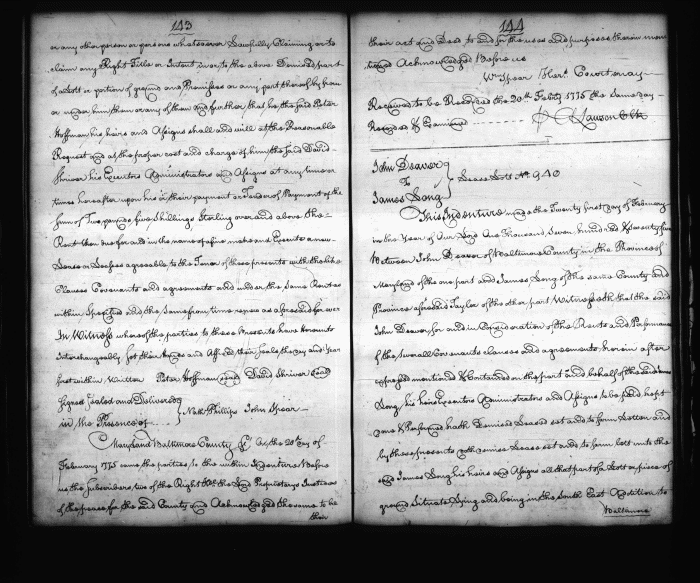 143
or any other person or persons whatsoever Lawfully Claiming or to
claim any Right Title or Intent in or to the above Demised part
of a Lott or portion of ground and Premises or any part thereof by from
or under him them or any of them and further that he the said Peter
Hoffman his heirs and Assigns shall and will at the Reasonable
Request and at the proper cost and charge of him the said David
Shriver his Executors Administrators and Assigns at any time or
times hereafter upon his or their payment or Tender of Payment of the
Sum of Two pounds five Shillings Sterling over and above the
Rent then due for and in the name of a fine make and Execute a new
Lease or Leases agreeable to the Tenor of these presents with the like
Clauses Covenants and agreements and under the Same Rent as
within Specified and the same from time renew as aforesaid for ever
In Witness whereof the parties to these Presents have hereunto
Interchangeably set their hands and Affixed their Seals the day and Year
first within Written Peter Hoffman Seal David Shriver Seal
Signed Sealed and Delivered
in the Presence of } Natt Phillips John Spear
Maryland Baltimore County Ss. At the 20th day of
February 1775 came the parties to the within Indenture Before
us the Subscribers two of the Right Hble the Lord Proprietarys Justices
of the peace for the said County and Acknowledged the same to be
their
144
their act and Deed to and for the uses and purposes therein men
tioned Acknowledged Before us
Wm Spear Hert. Courtenay
Received to be Recorded the 20th Febry 1775 the Same day
Recorded & Examined Lawson Clk
John Deaver
To
James Long } Lease Lott No. 940
This Indenture made the Twenty first day of February
in the Year of Our Lord One Thousand Seven hundred & Seventy five
Between John Deaver of Baltimore County in the Province of
Maryland of the one part and James Long of the same County and
Province aforesaid Taylor of the other part Witnesseth that the said
John Deaver for and in Consideration of the Rents and Performance
of the several Covenants clauses and agreements herein after
expressed mentioned & Contained on the part and behalf of the said James
Long his heirs Executors Administrators and Assigns to be paid kept
done & Performed hath Demised Leased set and to farm letten and
by these presents doth demise Lease set and to farm lett unto the
said James Long his heirs and Assigns all that part of a Lott or piece of
ground Situate Lying and being in the South East Addition to
Baltimore